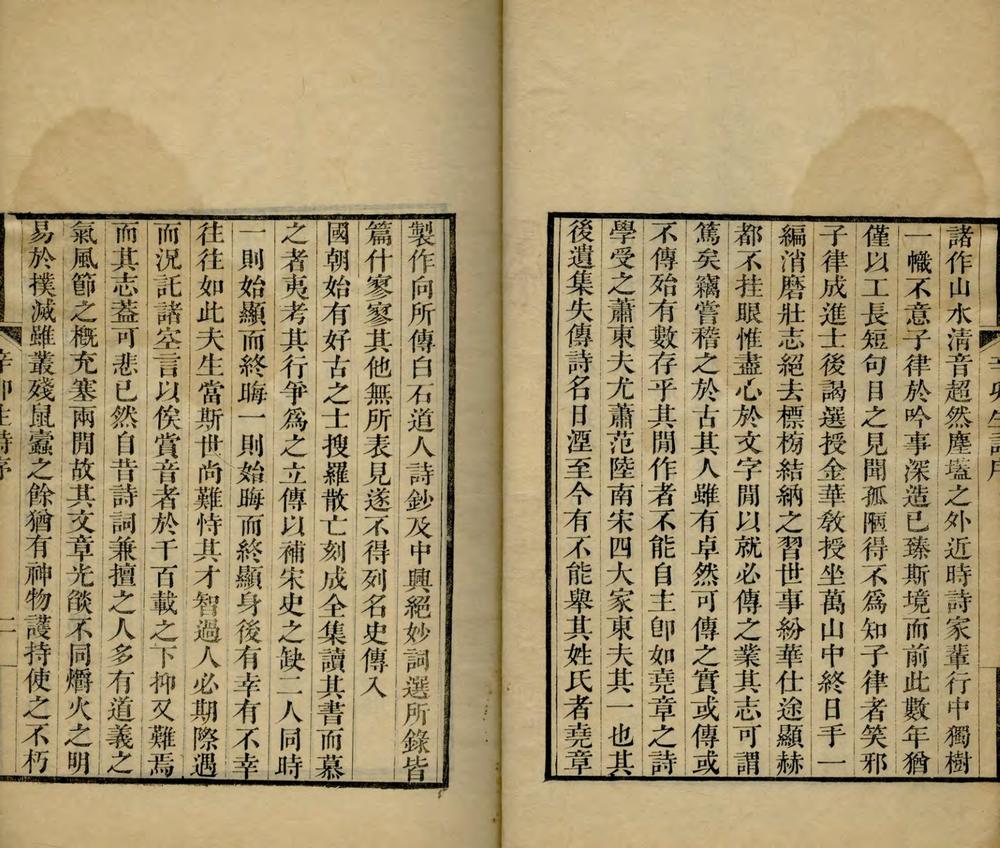 諸作山水淸音超然塵壒之外近時詩家輩行中獨樹
一幟不意子律於吟事深造已臻斯境而前此數年猶
僅以工長短句目之見聞孤陋得不爲知子律者笑邪
子律成進士後謁選授金華敎授坐萬山中終日手一
編消磨壯志絕去標榜結納之習世事紛華仕途顯赫
都不挂眼惟盡心於文字閒以就必傳之業其志可謂
篤矣竊嘗稽之於古其人雖有卓然可傳之實或傳或
不傳殆有數存乎其閒作者不能自主卽如堯章之詩
學受之蕭東夫尤蕭范陸南宋四大家東夫其一也其
後遺集失傳詩名日湮至今有不能舉其姓氏者堯章
製作向所傳白石道人詩鈔及中興絕妙詞選所錄皆
篇什寥寥其他無所表見遂不得列名史傳入
國朝始有好古之士搜羅散亡刻成全集讀其書而慕
之者夷考其行爭爲之立傳以補宋史之缺二人同時
一則始顯而終晦一則始晦而終顯身後有幸有不幸
往往如此夫生當斯世尙難恃其才智過人必期際遇
而況託諸空言以俟賞音者於千百載之下抑又難焉
而其志蓋可悲已然自昔詩詞兼擅之人多有道義之
氣風節之槪充塞兩閒故其文章光燄不同爝火之明
易於撲滅雖叢殘鼠蠹之餘猶有神物護持使之不朽
辛卯生詩序
二